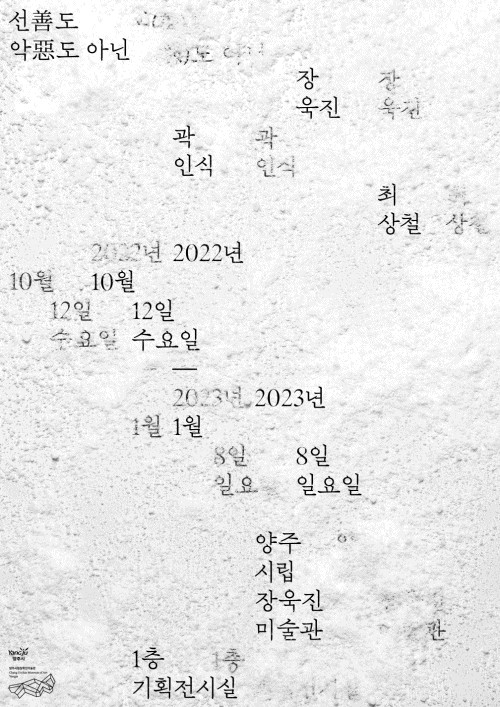 선善도
악惡도 아닌
장 장
욱진 욱진
곽 곽
인식 인식
최
상철 상철
2022년 2022년
10월 10월
12일 12일
수요일 수요일
—
2023년 2023년
1월 1월
8일 8일
일요 일요일
양주
시립
장욱진
미술관 관
1층 1층
기획전시실
Yangju
양주시